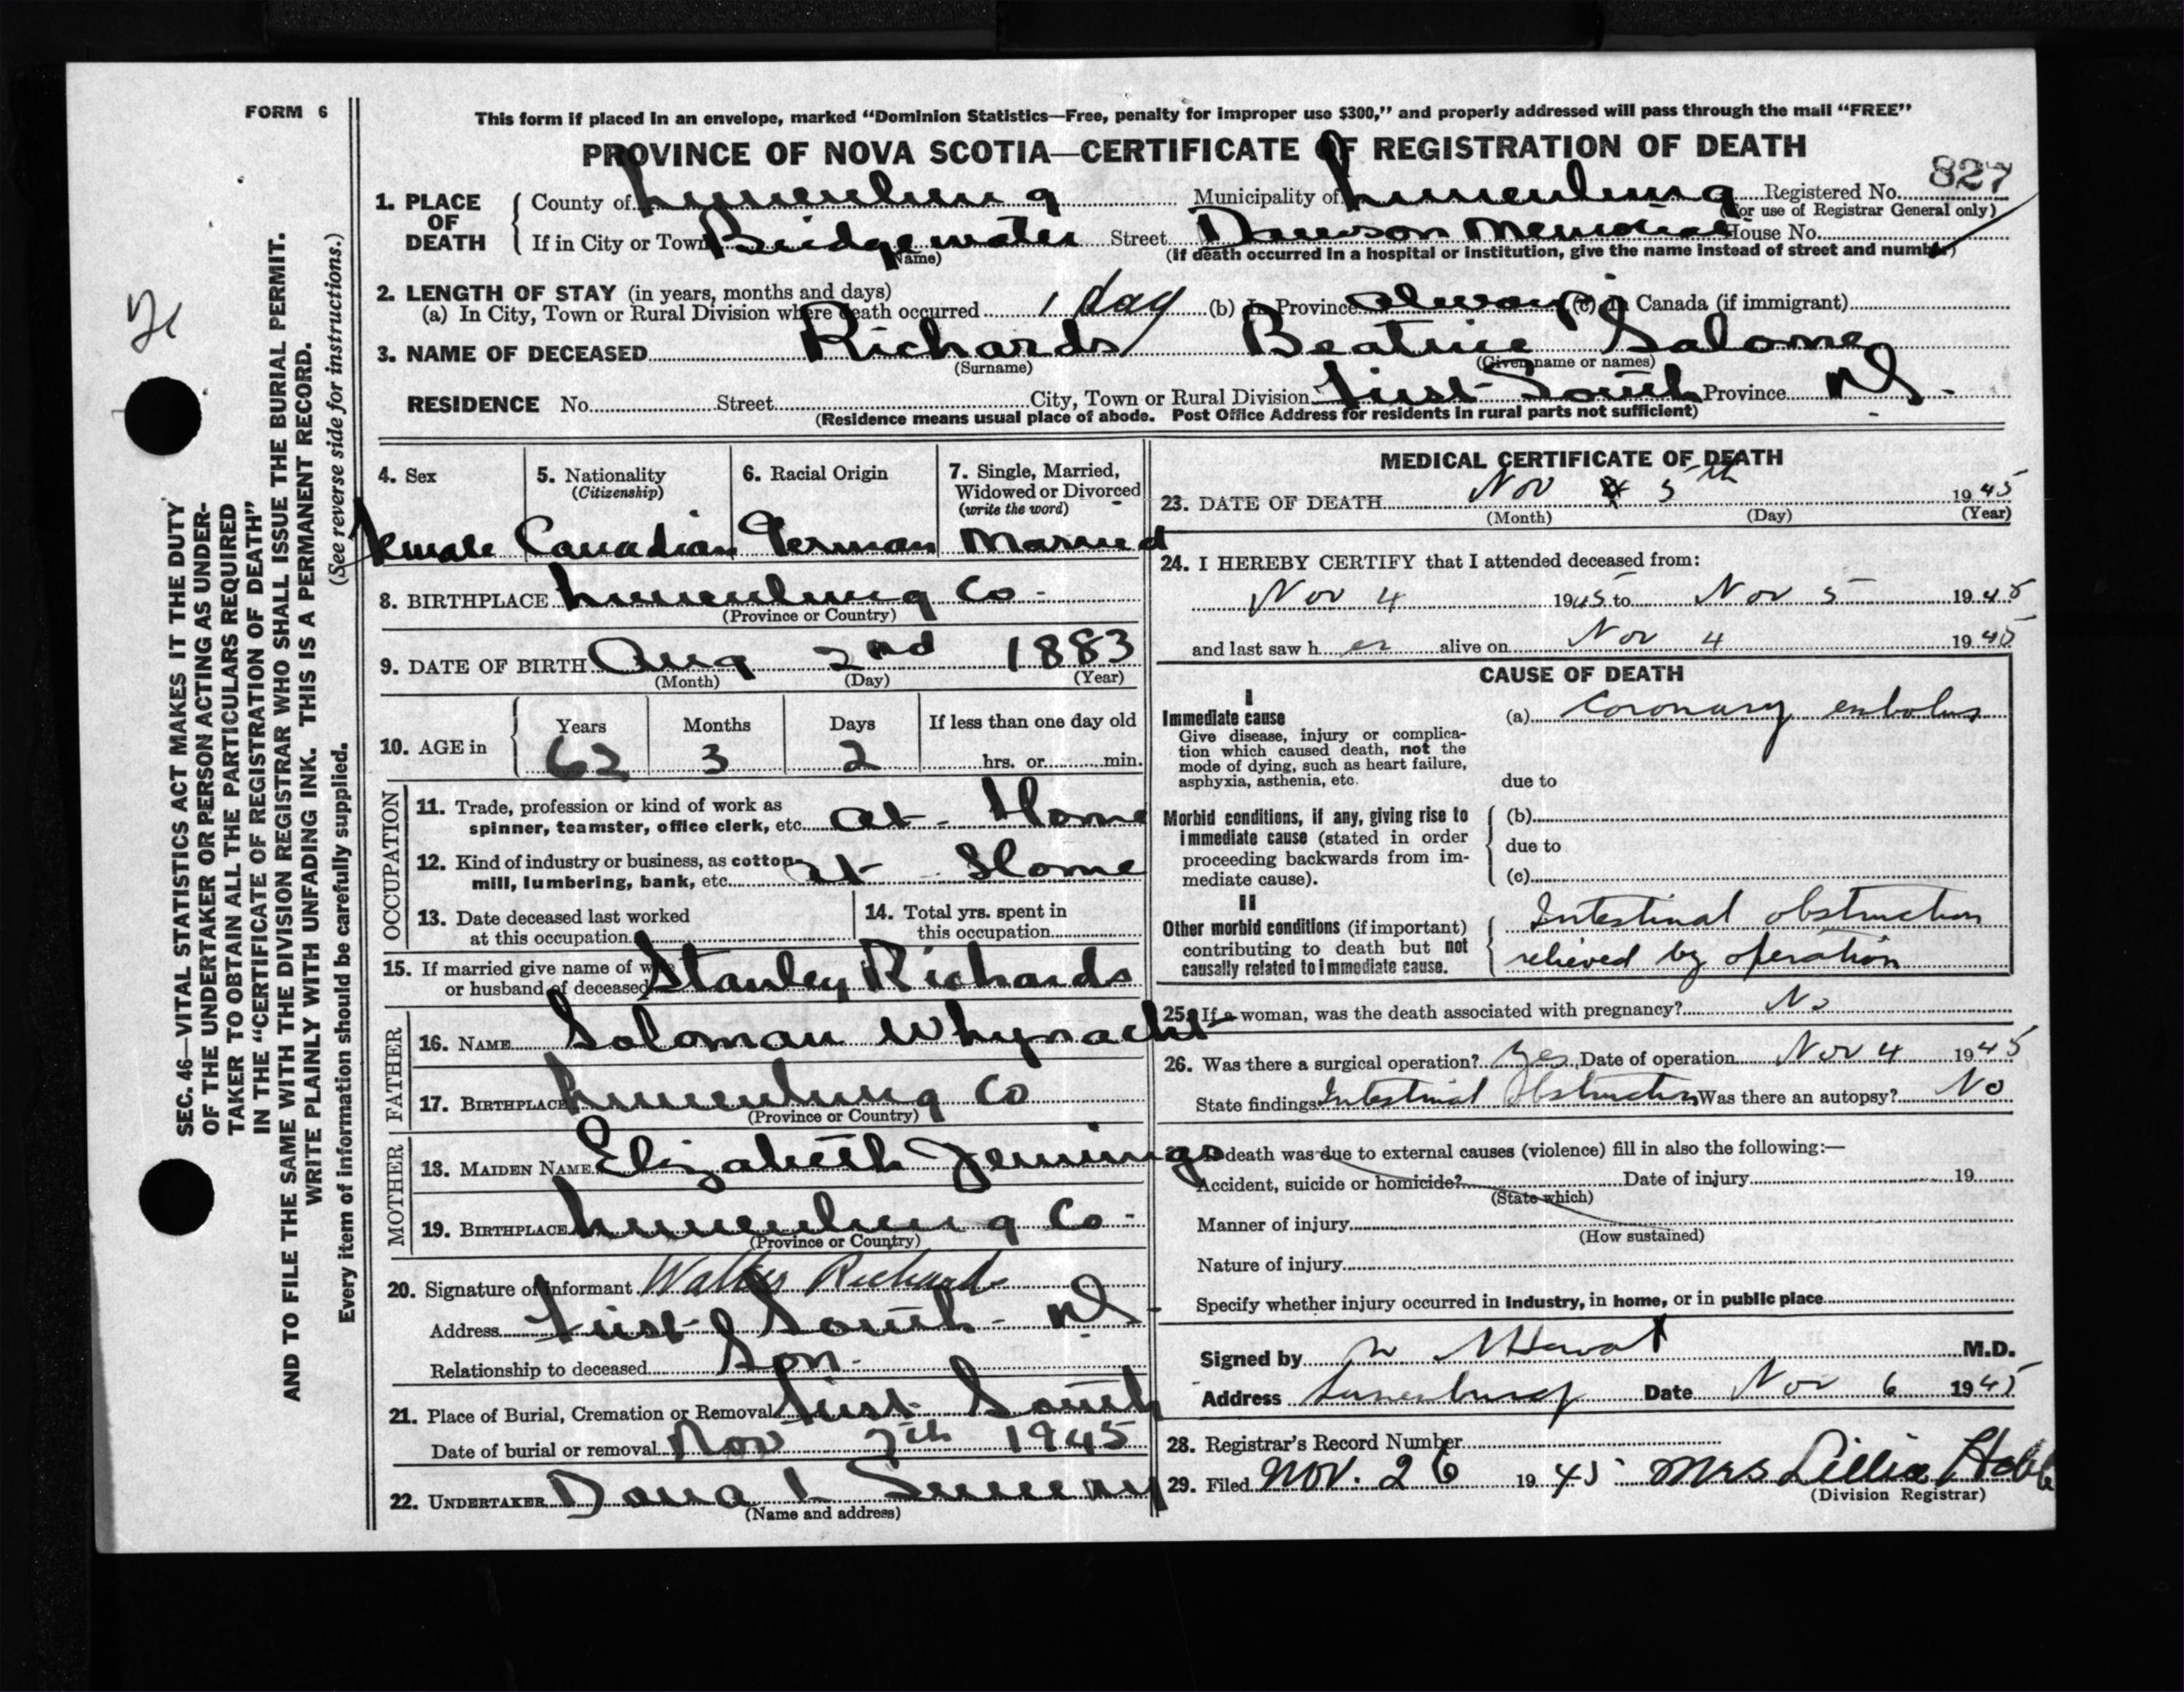 FORM 6
This form if placed in an envelope, marked “Dominion Statistics—Free, penalty for improper use $300,” and properly addressed will pass through the mail “FREE”
PROVINCE OF NOVA SCOTIA—CERTIFICATE OF REGISTRATION OF DEATH
827
1. PLACE OF DEATH County of Lunenburg Municipality of Lunenburg Registered No.
(For use of Registrar General only)
If in City or Town Bridgewater Street Dawson Memorial House No.
(Name) (If death occurred in a hospital or institution, give the name instead of street and number)
2. LENGTH OF STAY (in years, months and days)
(a) In City, Town or Rural Division where death occurred 1 day (b) In Province Always (c) In Canada (if immigrant)
3. NAME OF DECEASED Richards Beatrice Salome
(Surname) (Given name or names)
RESIDENCE No. Street City, Town or Rural Division First South Province N.S.
(Residence means usual place of abode. Post Office Address for residents in rural parts not sufficient)
4. Sex 5. Nationality (Citizenship) 6. Racial Origin 7. Single, Married, Widowed or Divorced (write the word)
Female Canadian German Married
8. BIRTHPLACE Lunenburg Co.
(Province or Country)
9. DATE OF BIRTH Aug 2nd 1883
(Month) (Day) (Year)
10. AGE in Years Months Days If less than one day old
62 3 2 hrs. or min.
OCCUPATION
11. Trade, profession or kind of work as
spinner, teamster, office clerk, etc. at Home
12. Kind of industry or business, as cotton
mill, lumbering, bank, etc. at Home
13. Date deceased last worked
at this occupation
14. Total yrs. spent in
this occupation
15. If married give name of wife
or husband of deceased Stanley Richards
FATHER
16. NAME Soloman Whynacht
17. BIRTHPLACE Lunenburg Co
(Province or Country)
MOTHER
18. MAIDEN NAME Elizabeth Jennings
19. BIRTHPLACE Lunenburg Co.
(Province or Country)
20. Signature of informant Walter Richards
Address First South N.S.
Relationship to deceased Son.
21. Place of Burial, Cremation or Removal First South
Date of burial or removal Nov 7th 1945
22. UNDERTAKER Dana L Sweeny
(Name and address)
MEDICAL CERTIFICATE OF DEATH
23. DATE OF DEATH Nov 5th 1945
(Month) (Day) (Year)
24. I HEREBY CERTIFY that I attended deceased from:
Nov 4 1945 to Nov 5 1945
and last saw her alive on Nov 4 1945
CAUSE OF DEATH
I
Immediate cause
Give disease, injury or complication which caused death, not the mode of dying, such as heart failure, asphyxia, asthenia, etc.
(a) Coronary embolus
due to
Morbid conditions, if any, giving rise to immediate cause (stated in order proceeding backwards from immediate cause).
(b)
due to
(c)
II
Other morbid conditions (if important) contributing to death but not causally related to immediate cause.
Intestinal obstruction
relieved by operation
25. If a woman, was the death associated with pregnancy? No
26. Was there a surgical operation? Yes Date of operation Nov 4 1945
State findings Intestinal Obstruction Was there an autopsy? No
If death was due to external causes (violence) fill in also the following:—
Accident, suicide or homicide? Date of injury 19
(State which)
Manner of injury
(How sustained)
Nature of injury
Specify whether injury occurred in industry, in home, or in public place
Signed by M.D.
Address Lunenburg Date Nov 6 1945
28. Registrar's Record Number
29. Filed Nov. 26 1945 Mrs Lillia Hebb
(Division Registrar)
SEC. 46—VITAL STATISTICS ACT MAKES IT THE DUTY
OF THE UNDERTAKER OR PERSON ACTING AS UNDER-
TAKER TO OBTAIN ALL THE PARTICULARS REQUIRED
IN THE “CERTIFICATE OF REGISTRATION OF DEATH”
AND TO FILE THE SAME WITH THE DIVISION REGISTRAR WHO SHALL ISSUE THE BURIAL PERMIT.
WRITE PLAINLY WITH UNFADING INK. THIS IS A PERMANENT RECORD.
(See reverse side for instructions.)
Every item of information should be carefully supplied.